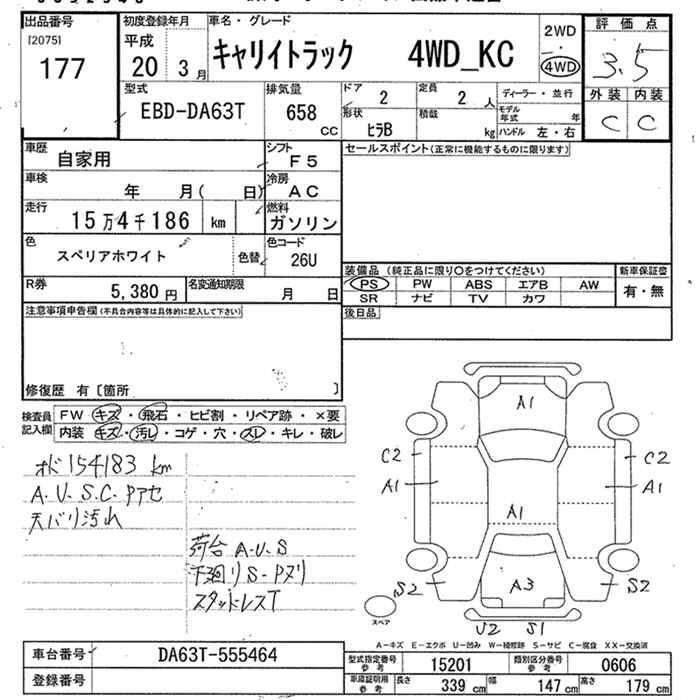 出品番号
[2075]
177
初度登録年月
平成
20 3月
車名・グレード
キャリイトラック 4WD_KC
2WD
・
4WD
評価点
3.5
外装 内装
C C
型式
EBD-DA63T
排気量
658
CC
ドア
2
定員
2 人
形状
ヒラB
積載
kg
ディーラー・並行
モデル年式 年
ハンドル 左・右
車歴
自家用
シフト
F5
車検
年 月( 日)
冷房
AC
走行
15万4千186 km
燃料
ガソリン
色
スペリアホワイト
色替
色コード
26U
R券
5,380 円
名変通知期限
月 日
注意事項申告欄(不具合内容等は具体的に記入して下さい)
修復歴 有〔箇所 〕
セールスポイント(正常に機能するものに限ります)
装備品(純正品に限り○をつけてください)
PS PW ABS エアB AW
SR ナビ TV カワ
新車保証書
有・無
後日品
検査員
記入欄
FW キズ・飛石・ヒビ割・リペア跡・×要
内装 キズ・汚レ・コゲ・穴・スレ・キレ・破レ
オド154183 km
A.U.S.C.Pアセ
天バリ汚れ
荷台A.U.S
下廻りS-Pヌリ
スタッドレスT
A1
C2
C2
A1
A1
A1
A3
S2
S2
U2 S1
スペア
A-キズ E-エクボ U-凹み W-補修跡 S-サビ C-腐食 XX-交換済
車台番号
DA63T-555464
登録番号
型式指定番号
参考
15201
類別区分番号
参考
0606
車庫証明用
参考
長さ 339 cm
幅 147 cm
高さ 179 cm